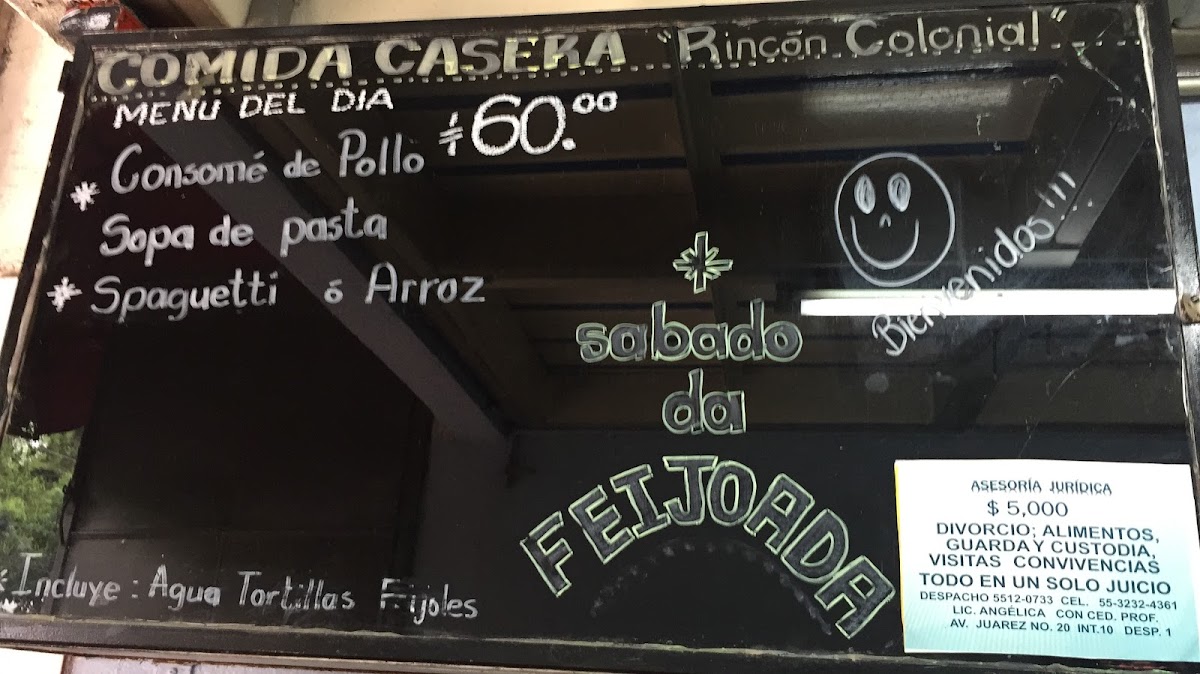 COMIDA CASERA "Rincón Colonial"
MENU DEL DIA
$60.00
* Consomé de Pollo
Sopa de pasta
* Spaguetti ó Arroz
Bienvenidos!!!
sabado
da
FEIJOADA
* Incluye: Agua Tortillas Frijoles
ASESORÍA JURÍDICA
$ 5,000
DIVORCIO; ALIMENTOS,
GUARDA Y CUSTODIA,
VISITAS CONVIVENCIAS
TODO EN UN SOLO JUICIO
DESPACHO 5512-0733 CEL. 55-3232-4361
LIC. ANGÉLICA CON CED. PROF.
AV. JUAREZ NO. 20 INT.10 DESP. 1